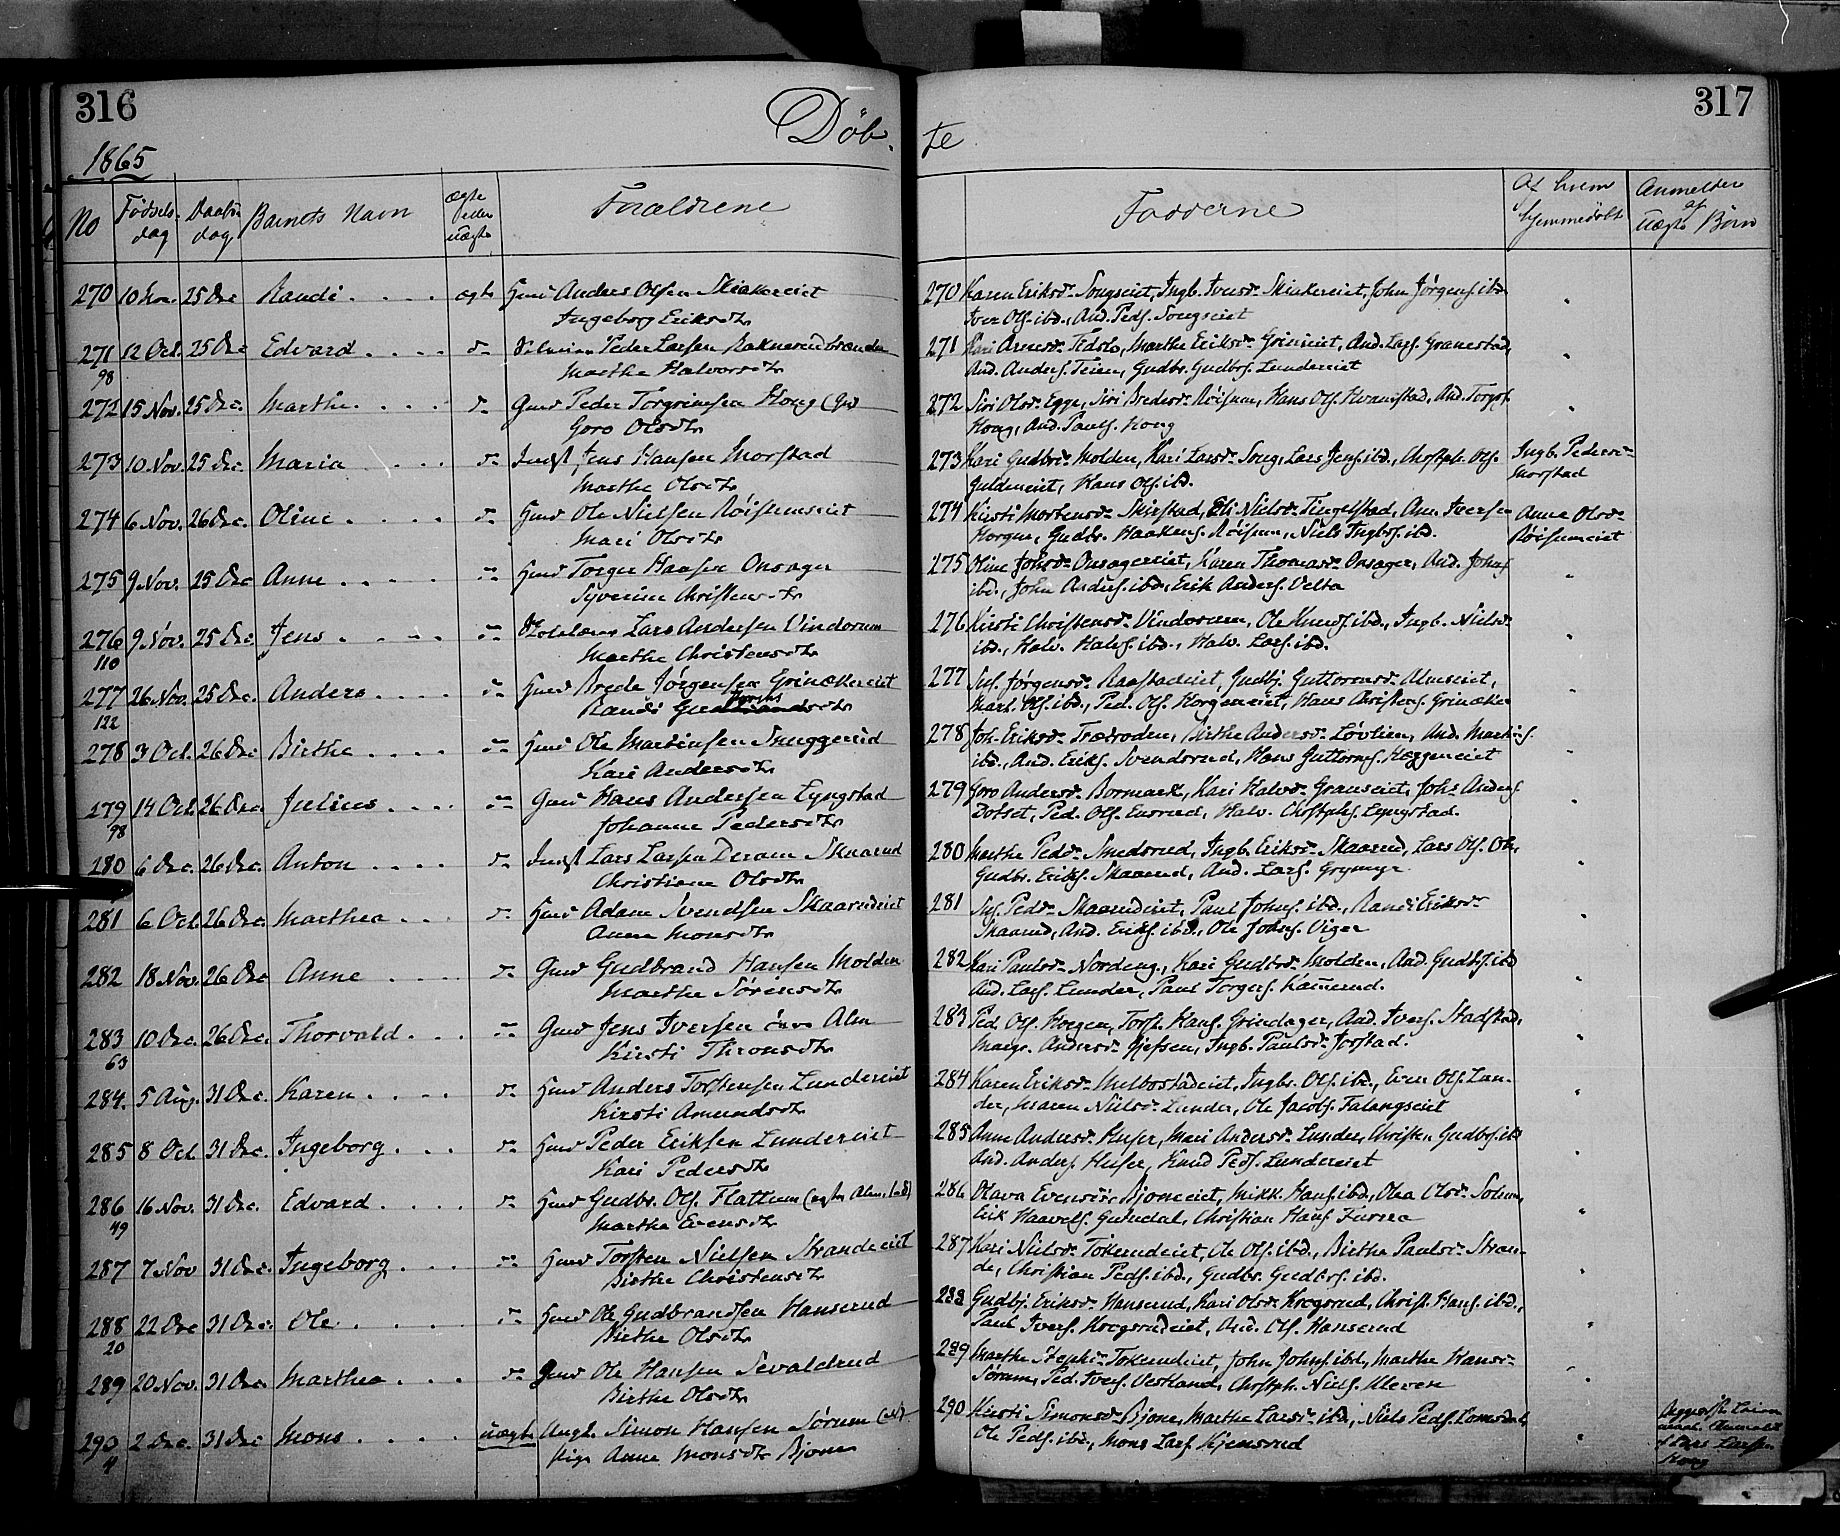 316
Døb
1865
No Fødsels dag Daabs dag Barnets Navn ægte eller uægte Forældrene
270 10 Nov. 25 Dec Randi . . . . ægte Huusm Anders Olsen
Ingeborg Eriksdtr
271 12 Oct. 25 Dec Edvard . . . . do Peder Larsen
98 Marthe Halvorsdtr
272 15 Nov. 25 Dec. Marthe . . . . do Gmd Peder Torgrimsen Houg
Goro Olsdtr
273 10 Nov. 25 Dec. Maria . . . . do Inds Jens Hansen Morstad
Marthe Olsdtr
274 6 Nov. 26 Dec. Oline . . . . do Hmd Ole Nielsen Røisumeiet
Mari Olsdtr
275 9 Nov. 25 Dec Anne . . . . do Hmd Torger Hansen Onsager
Syverine Christensdtr
276 9 Nov. 25 Dec Jens . . . . do Lars Andersen Vindorum
110 Marthe Christensdtr
277 26 Nov. 25 Dec. Anders . . . . do Hmd Brede Jørgensen Grinakereiet
122 Randi
278 3 Oct. 26 Dec Birthe . . . . do Hmd Ole Martinsen Smeggerud
Kari Andersdtr
279 14 Oct. 26 Dec. Julius . . . . do Gmd Hans Andersen Lyngstad
98 Johanne Pedersdtr
280 6 Dec. 26 Dec. Anton . . . . do Inds Lars Larsen Skaarud
Christiane Olsdtr
281 6 Oct. 26 Dec. Marthea . . . do Hmd Adam Svendsen Skaarudeiet
Anne Monsdtr
282 18 Nov. 26 Dec Anne . . . . do Gmd Gudbrand Hansen Molden
Marthe Sørensdtr
283 10 Dec. 26 Dec. Thorvald . . . do Gmd Jens Iversen Alm
63 Kirsti Thronsdtr
284. 5 Aug. 31 Dec. Karen . . . . do Hmd Anders Torstensen Lundereiet
Kirsti Amundsdtr
285 8 Oct. 31 Dec. Ingeborg . . . do Hmd Peder Eriksen Lundereiet
Kari Pedersdtr
286 16 Nov. 31 Dec. Edvard . . . . do Hmd Gudbr. Ols. Flattum
49 Marthe Evensdtr
287 7 Nov 31 Dec. Ingeborg . . . . do Hmd Torsten Nielsen Strandeeiet
Birthe Christensdtr
288 22 Dec 31 Dec. Ole . . . . do Hmd Ole Gudbrandsen Hanserud
20 Birthe Olsdtr
289 20 Nov. 31 Dec. Marthea . . . . do Gmd Ole Hansen Sevaldrud
Birthe Olsdtr
290 2 Dec. 31 Dec Mons . . . . uægte Ungk. Simon Hansen Sørum
4 Pige Anne Monsdtr Bjone
317
te
Fadderne Af hvem hjemmedøbt Anmelder af Uægte Børn
270 Karen Eriksdr Songseiet, Ingb. Iversdr John Jørgens. ibd.
Iver Ols. ibd., And. Peds. Songseiet
271 Kari Arnesdr Marthe Eriksdr And. Lars. Granestad,
And. Anders. Teien, Gudbr. Gudbrs. Lundereiet
272 Siri Olsdr Egge, Siri Bredesdr Røisum, Hans Ols. And. Torgrs.
Houg, And. Pauls. Houg
273 Kari Gudbrdr Molden, Kari Larsdr Song, Lars Jens. ibd., Chrstph. Ols. Ingb. Pedersdr
Hans Ols. ibd. Morstad
274 Kirsti Mortensdr Skirstad, Eli Nielsdr Tingelstad, Iversen Anne Olsdr
Horgen, Gudbr. Haakens. Røisum, Niels Ingbrs. ibd. Røisumeiet
275 Oline Johsdr Onsagereiet, Karen Thomasdr Onsager, And. Johns.
ibd., John Anders. ibd., Erik Anders. Velta
276 Kirsti Christensdr Vindorum, Ole Knuds. ibd., Ingb. Nielsdr
ibd., Halv. Halvs. ibd., Halv. Lars. ibd.
277 Jørgensdr Raastadeiet, Gudbj. Guttormsdr Almseiet,
Mart. Ols. ibd., Ped. Ols. Horgeneiet, Hans Christens. Grinaker
278 Joh. Eriksdr Birthe Andersdr Løvlien, And. Martins.
ibd., And. Eriks. Svendsrud, Hans Guttorms. Heggeneiet
279 Goro Andersdr Bormark, Kari Halvdr Granseiet, Johs. Anders.
Dotset, Ped. Ols. Halv. Chrstphs. Lyngstad.
280 Marthe Pedsdr Smedsrud, Ingb. Eriksdr Skaarud, Lars Ols.
Gudbr. Eriks. Skaarud, And. Lars. Grymyr
281 Pedsdr Skaarudeiet, Paul Johns. ibd., Randi Eriksdr
Skaarud, And. Eriks. ibd., Ole Johns. Viger
282 Kari Paulsdr Nordeng, Kari Gudbrdr Molden, And. Gudbrs. ibd
And. Lars. Lunder, Paul Torgers. Kammerud.
283 Ped Ols. Hans. Grindager, And. Ivers. Stadstad,
Andersdr Ingb. Paulsdr
284 Karen Eriksdr Melbostadeiet, Ingbr. Ols. ibd., Even Ols. Lun-
der, Maren Nielsdr Lunder, Ole Jacobs. Falangseiet
285 Anne Andersdr Mari Andersdr Lunder, Christen Gudbrs. ibd
And. Anders. Knud Peds. Lundereiet
286 Olava Evensdr Bjoneeiet, Mikk. Hans. ibd., Olea Olsdr
Erik Haavels. Christian Hans.
287 Kari Nielsdr Ole Ols. ibd., Birthe Paulsdr Stran-
de, Christian Peds. ibd., Gudbr. Gudbrs. ibd.
288 Gudbj. Eriksdr Hanserud, Kari Olsdr Krogsrud, Christ. Hans. ibd.,
Paul Ivers. Krogsrudeiet, And. Ols. Hanserud
289 Marthe John Johns. ibd., Marthe Hansdr
Sørum, Ped. Ivers. Vestland, Chrstph. Niels. Kleven
290 Kirsti Simonsdr Bjone, Marthe Larsdr ibd., Niels Peds.
Ole Peds. ibd., Mons Lars.
Anmeldt
af Lars Larsen
Houg